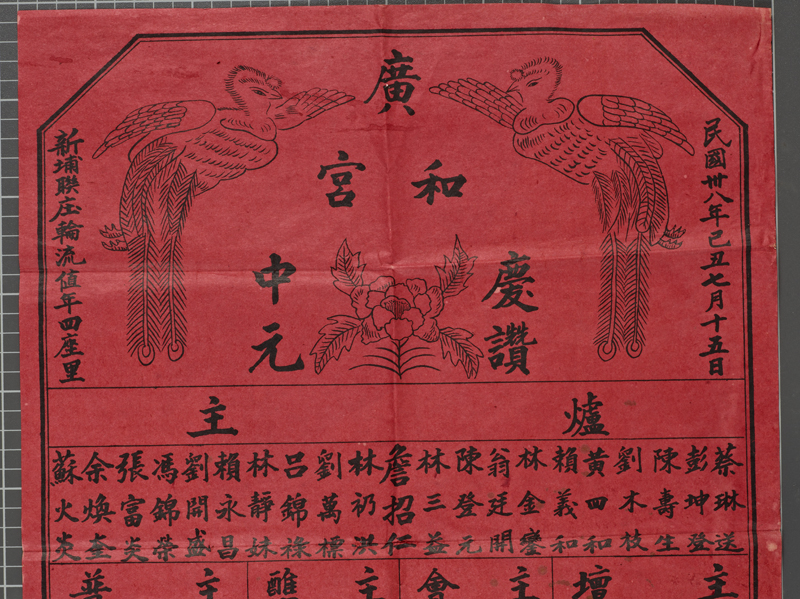 民國卅八年己丑七月十五日
廣和宮
慶讚
中元
新埔聯庄輪流值年四座里
爐主
蔡琳送
彭坤登
陳壽生
劉木枝
黃四和
賴義和
林金鑾
翁廷開
陳登元
林三益
詹招仁
林礽洪
劉萬標
呂錦祿
林靜妹
賴永昌
劉開盛
馮錦榮
張富炎
余煥奎
蘇火炎
主壇
主會
主醮
主普